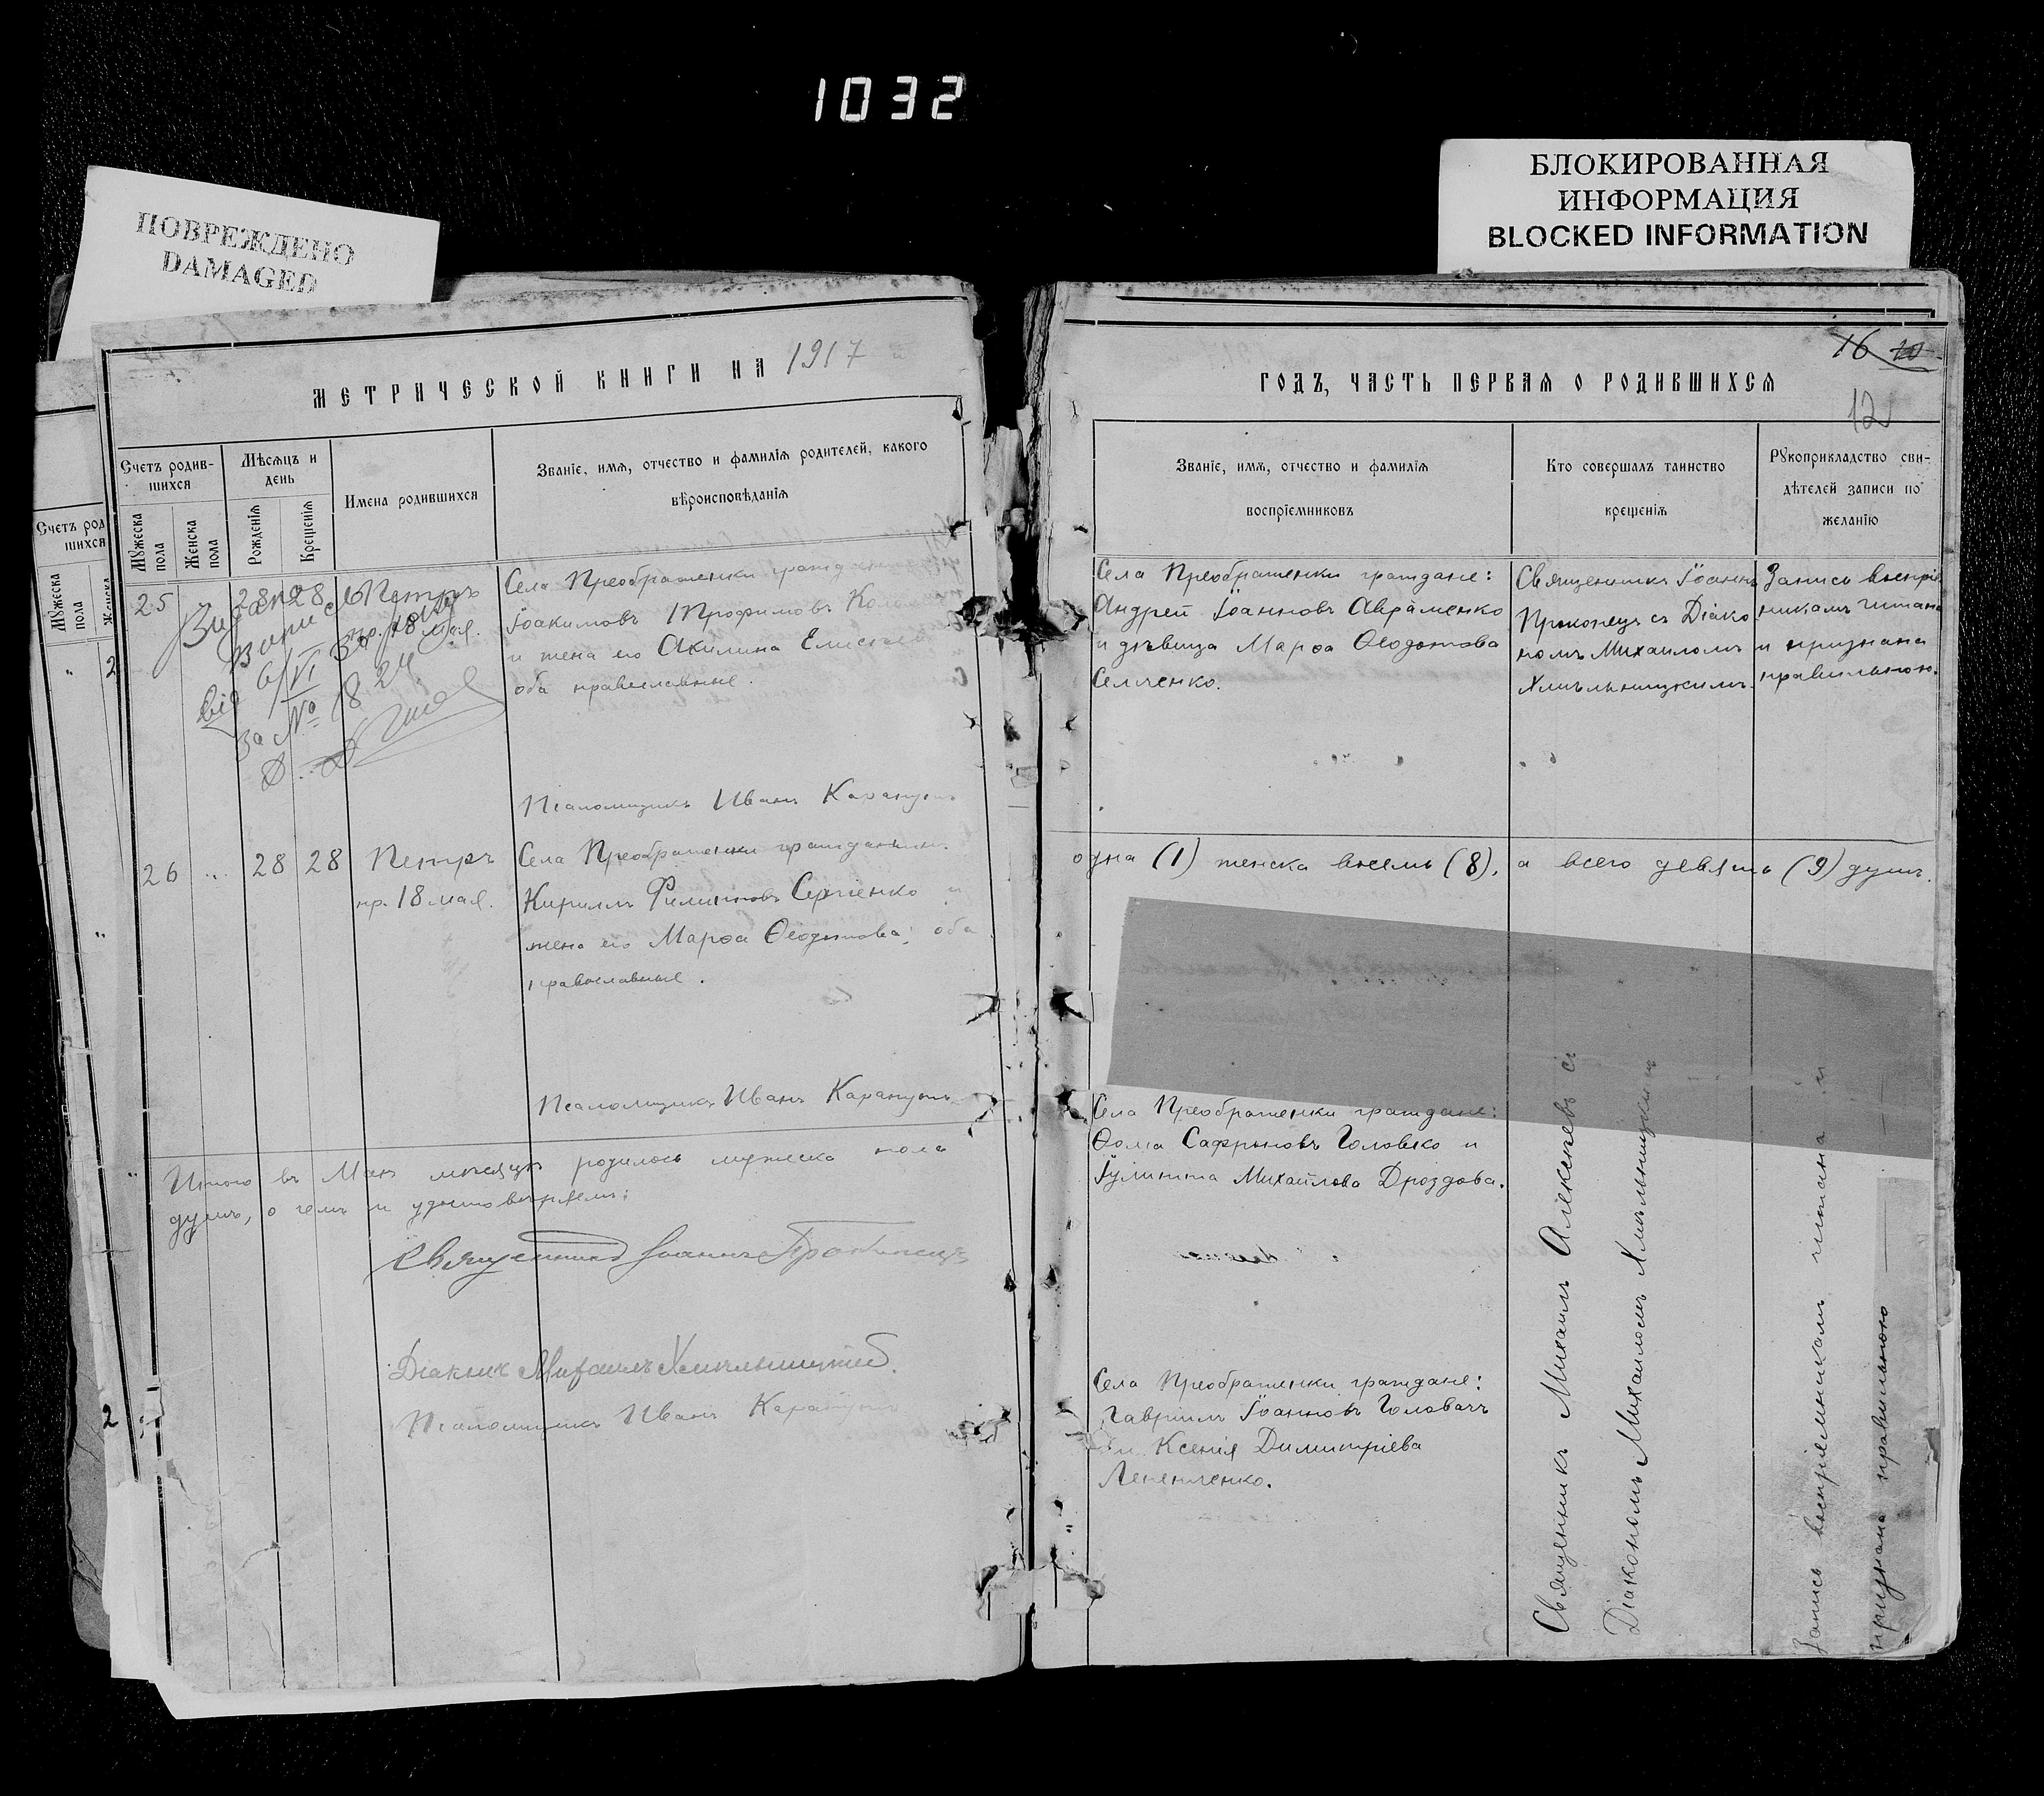 1032
ПОВРЕЖДЕНО
DAMAGED
БЛОКИРОВАННАЯ
ИНФОРМАЦИЯ
BLOCKED INFORMATION
МЕТРИЧЕСКОЙ КНИГИ НА 1917
Счетъ родив-
шихся
Мѣсяцъ и
день
Имена родившихся
Званіе, имя, отчество и фамилія родителей, какого
вѣроисповѣданія
Мужеска
пола
Женска
пола
Рожденія
Крещенія
Счетъ род
шихся
Мужеска
пола
25
28
28
Петръ
пр. 18 мая.
Села Преображенки
Іоакимовъ Трофимовъ
и жена его Акилина
оба православные.
від 6/VI
за №
Псаломщикъ Иванъ
26
28
28
Петръ
пр. 18 мая.
Села Преображенки гражданинъ
Кириллъ Филипповъ Сергіенко и
жена его Марѳа Ѳеодотова; оба
православные.
Псаломщикъ Иванъ
Итого въ Маѣ мѣсяцѣ родилось мужеска пола
душъ, о чемъ и удостовѣряемъ:
Священникъ Іоаннъ
Діаконъ Михаилъ Хмѣльницкій.
Псаломщикъ Иванъ
16 20
ГОДЪ, ЧАСТЬ ПЕРВАЯ О РОДИВШИХСЯ
12
Званіе, имя, отчество и фамилія
воспріемниковъ
Кто совершалъ таинство
крещенія
Рукоприкладство сви-
дѣтелей записи по
желанію
Села Преображенки граждане:
Андрей Іоанновъ Авраменко
и дѣвица Марѳа Ѳеодотова
Семченко.
Священникъ Іоаннъ
Проконецъ съ Діако
номъ Михаиломъ
Хмѣльницкимъ.
Запись воспріе
никамъ читана
и признана
правильною.
одна (1) женска восемь (8), а всего девять (9) душъ.
Села Преображенки граждане:
Ѳома Сафроновъ Головко и
Іулитта Михайлова Дроздова.
Села Преображенки граждане:
Гавріилъ Іоанновъ Головачъ
и Ксенія Димитріева
Лепетченко.
Священникъ Михаилъ Алексѣевъ съ
Діакономъ Михаиломъ Хмѣльницкимъ
Запись воспріемникамъ читана и
признана правильною